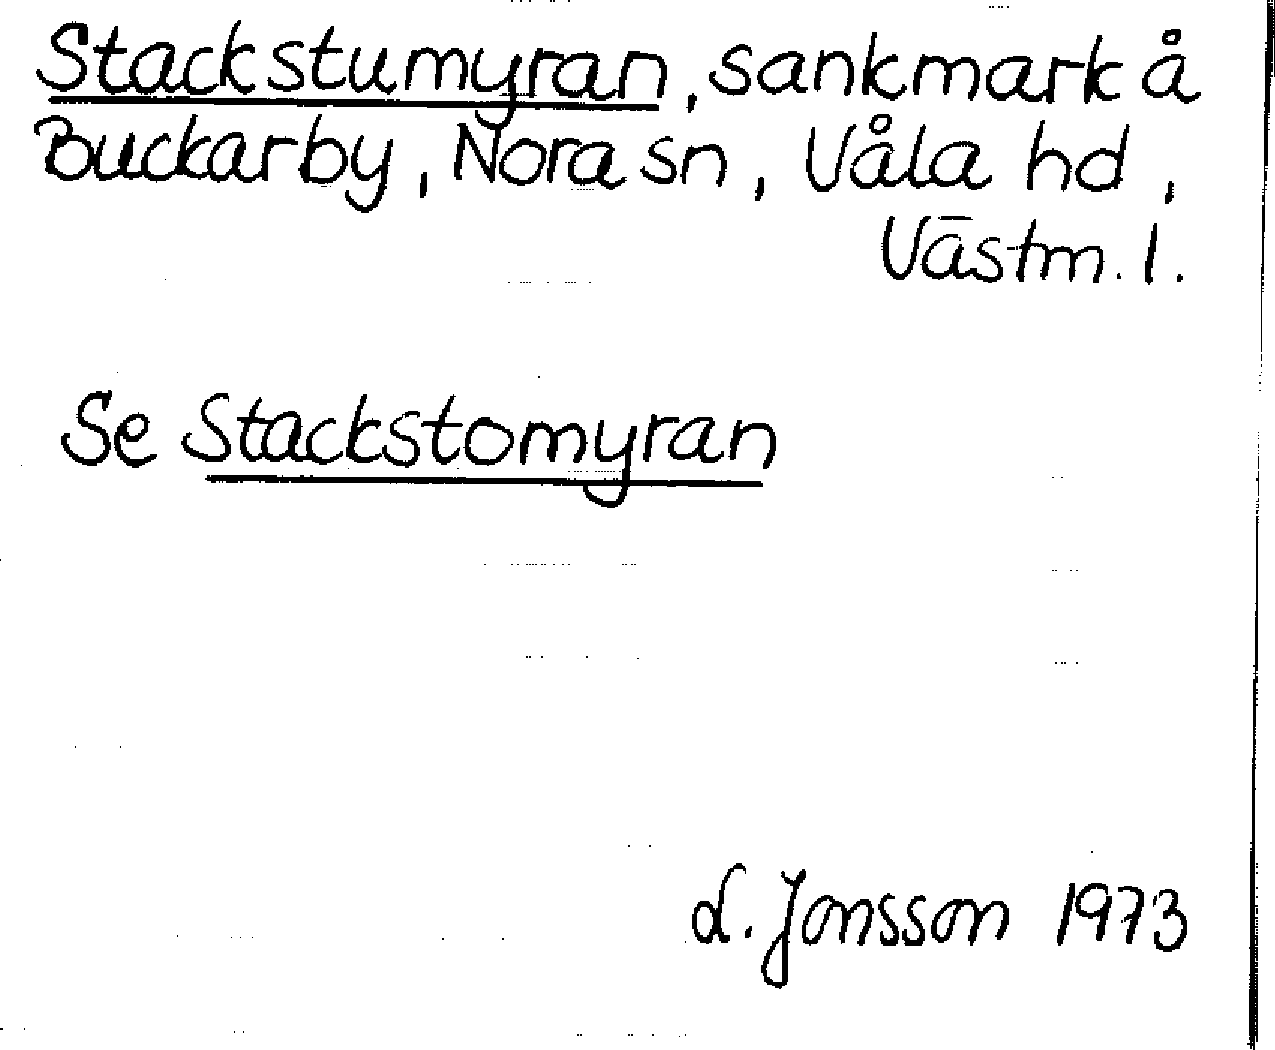 Stackstumyran, sankmark å
Buckarby, Nora sn, Våla hd,
Västm. l.
Se Stackstomyran
L. Jonsson 1973